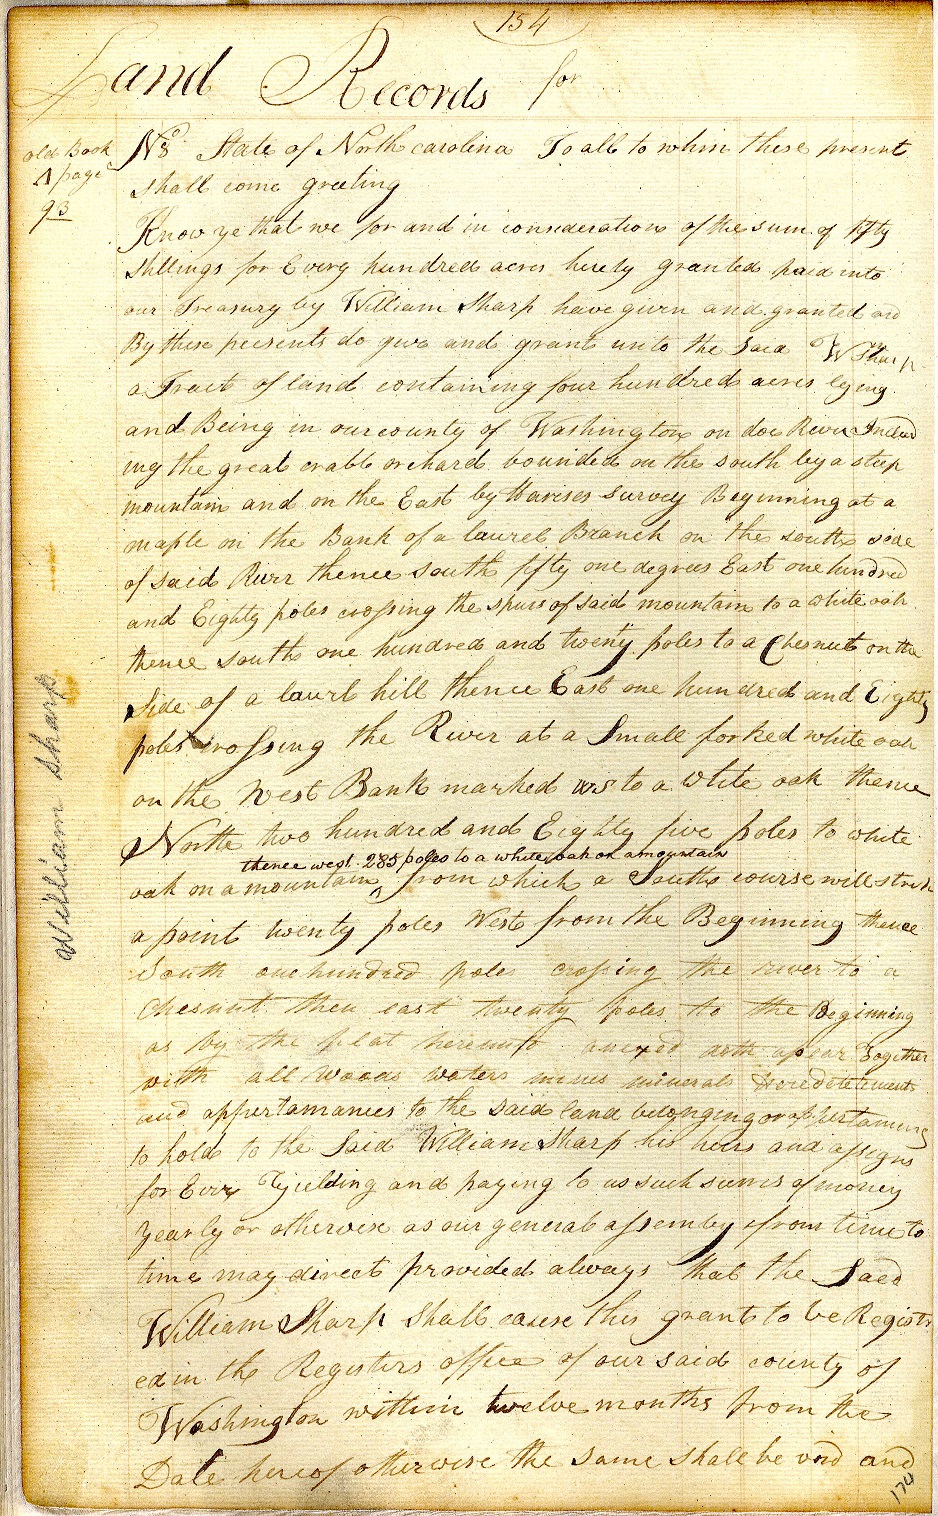 154
Land Records for
old Book
A page
93
No 8 State of North carolina To all to whim these present
shall come greeting
Know ye that we for and in consideration of the sum of fifty
Shillings for Every hundred acres hirely granted paid into
our Treasury by William Sharp have given and granted and
By these presents do give and grant unto the Said Wm Sharp
a Tract of land containing four hundred acres lying
and Being in our county of Washington on doe River Includ
ing the great crable orchard bounded on the south by a steep
mountain and on the East by Harises survey Beginning at a
maple on the Bank of a laurel Branch on the south side
of said River thence south fifty one degrees East one hundred
and Eighty poles crossing the spurs of said mountain to a white oak
thence south one hundred and twenty poles to a Chesnut on the
Side of a laurl hill thence East one hundred and Eighty
poles crossing the River at a Small forked white oak
on the West Bank marked WS to a white oak thence
North two hundred and Eighty five poles to white
thence west 285 poles to a white oak on a mountain
oak on a mountain ^ from which a South course will strik
a point twenty poles West from the Beginning thence
South one hundred poles crossing the river to a
Chesnut then east twenty poles to the Beginning
as by the plat hereunto anexed doth apear Together
with all woods waters mines minerals Hereditements
and appertanances to the said land belonging or appertaining
to hold to the Said William Sharp his heirs and assigns
for Ever Yjelding and paying to us such sums of money
yearly or otherwise as our general assemby from time to
time may direct provided always that the Said
William Sharp Shall cause this grant to be Registr
ed in the Registers office of our said county of
Washington within twelve months from the
Date hereof otherwise the same shall be void and
William Sharp
174